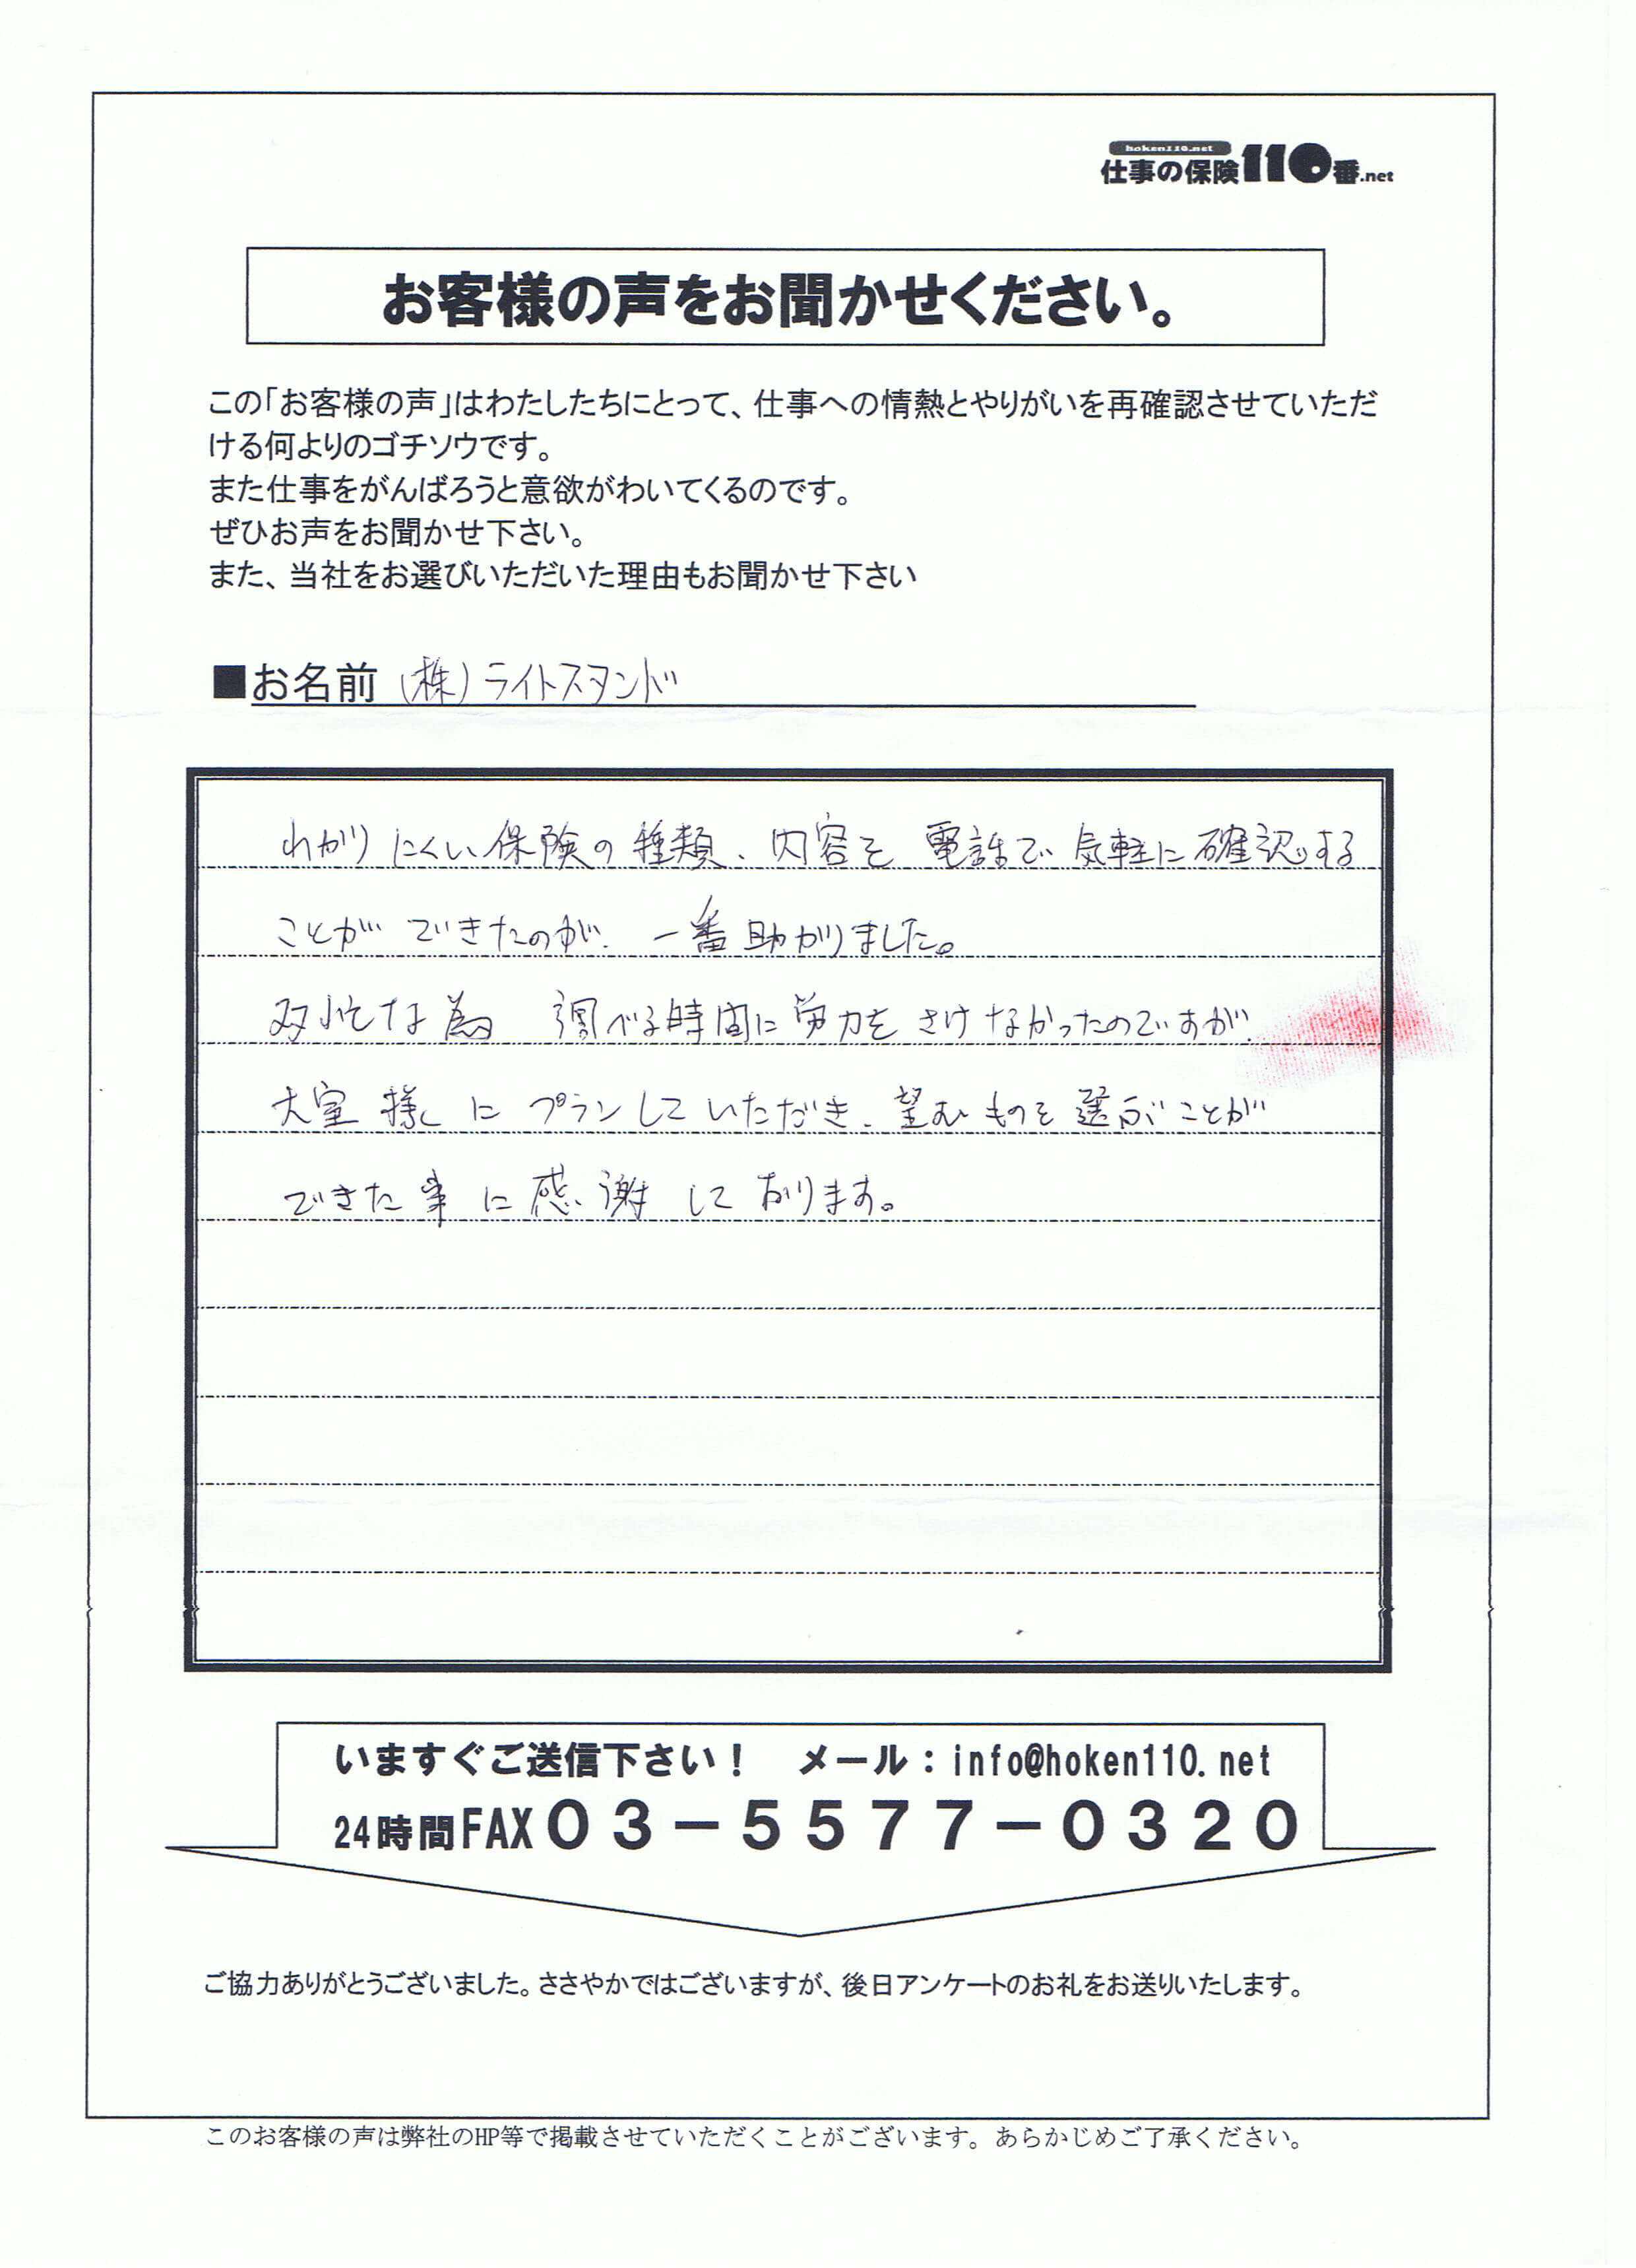 hoken110.net
仕事の保険110番.net
お客様の声をお聞かせください。
この「お客様の声」はわたしたちにとって、仕事への情熱とやりがいを再確認させていただ
ける何よりのゴチソウです。
また仕事をがんばろうと意欲がわいてくるのです。
ぜひお声をお聞かせ下さい。
また、当社をお選びいただいた理由もお聞かせ下さい
■お名前 (株)ライトスタンド
わかりにくい保険の種類、内容を電話で気軽に確認する
ことができたのが、一番助かりました。
多忙な為 調べる時間に労力をさけなかったのですが、
大室様にプランしていただき、望むものを選ぶことが
できた事に感謝しております。
いますぐご送信下さい！ メール：info@hoken110.net
24時間FAX０３－５５７７－０３２０
ご協力ありがとうございました。ささやかではございますが、後日アンケートのお礼をお送りいたします。
このお客様の声は弊社のHP等で掲載させていただくことがございます。あらかじめご了承ください。